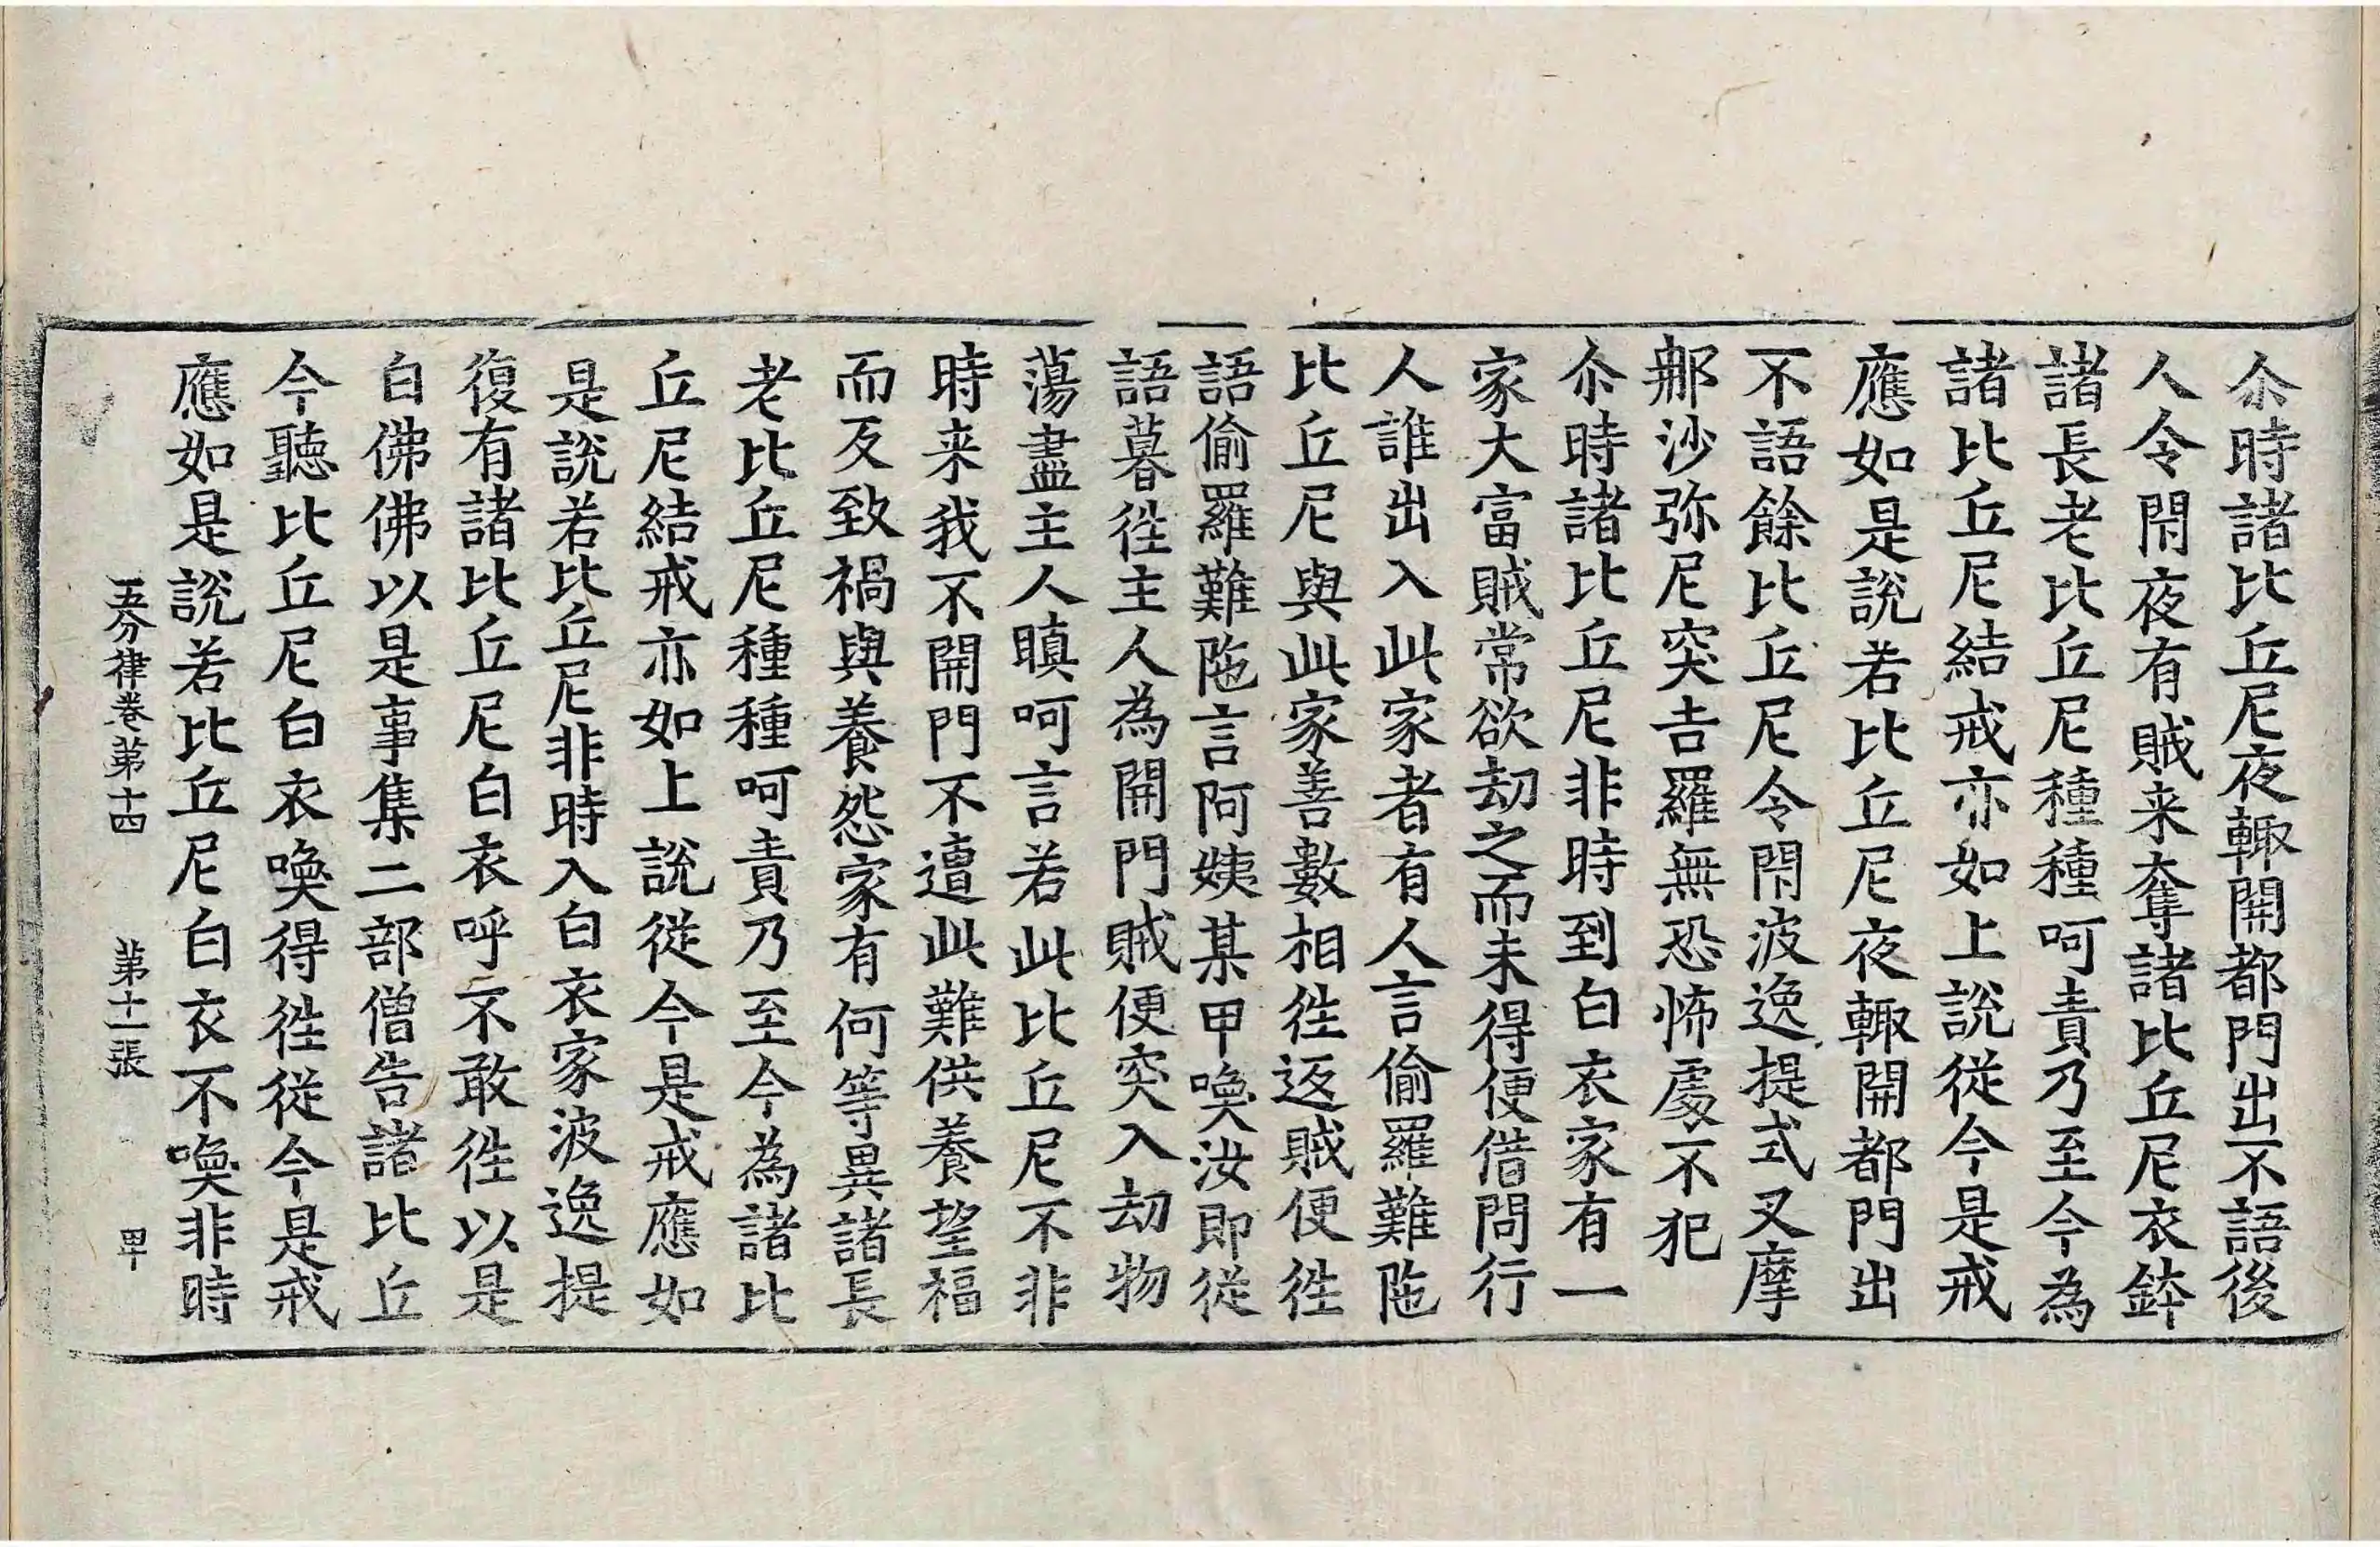 尒時諸比丘尼夜輙開都門出不語後
人令閇夜有賊来奪諸比丘尼衣鉢
諸長老比丘尼種種呵責乃至今為
諸比丘尼結戒亦如上說從今是戒
應如是說若比丘尼夜輙開都門出
不語餘比丘尼令閇波逸提式叉摩
那沙弥尼突吉羅無恐怖處不犯
尒時諸比丘尼非時到白衣家有一
家大富賊常欲劫之而未得便借問行
人誰出入此家者有人言偷羅難陁
比丘尼與此家善數相徃返賊便徃
語偷羅難陁言阿姨某甲喚汝即從
語暮徃主人為開門賊便突入劫物
蕩盡主人瞋呵言若此比丘尼不非
時来我不開門不遭此難供養望福
而反致禍與養怨家有何等異諸長
老比丘尼種種呵責乃至今為諸比
丘尼結戒亦如上說從今是戒應如
是說若比丘尼非時入白衣家波逸提
復有諸比丘尼白衣呼不敢徃以是
白佛佛以是事集二部僧告諸比丘
今聽比丘尼白衣喚得徃從今是戒
應如是說若比丘尼白衣不喚非時
五分律卷第十四 第十一張